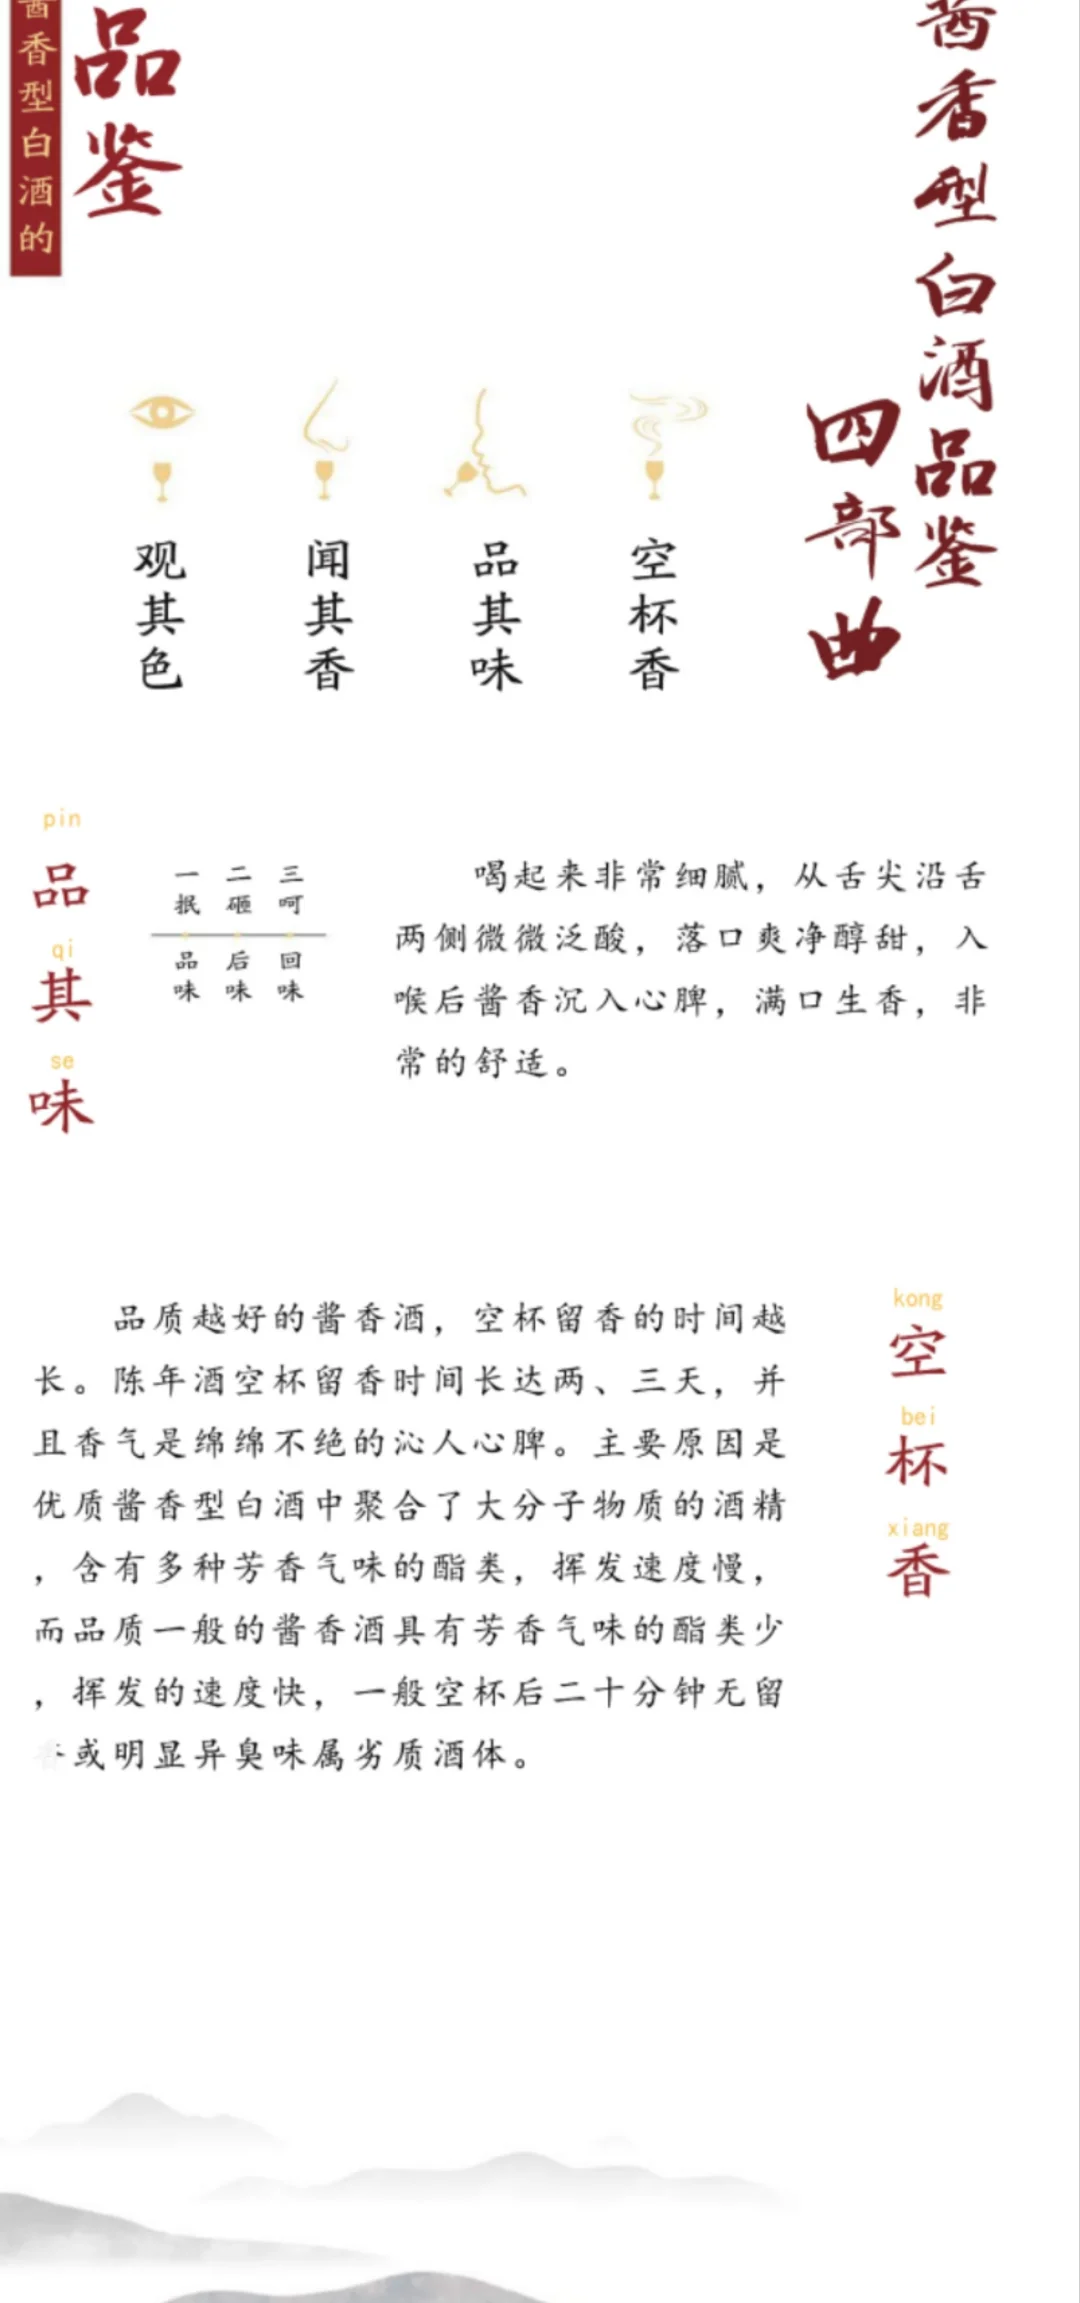 酱香型白酒的
品鉴
酱香型白酒品鉴
四部曲
观其色
闻其香
品其味
空杯香
pin
品
qi
其
se
味
一抿
二砸
三呵
品味
后味
回味
喝起来非常细腻，从舌尖沿舌
两侧微微泛酸，落口爽净醇甜，入
喉后酱香沉入心脾，满口生香，非
常的舒适。
kong
空
bei
杯
xiang
香
品质越好的酱香酒，空杯留香的时间越
长。陈年酒空杯留香时间长达两、三天，并
且香气是绵绵不绝的沁人心脾。主要原因是
优质酱香型白酒中聚合了大分子物质的酒精
，含有多种芳香气味的酯类，挥发速度慢，
而品质一般的酱香酒具有芳香气味的酯类少
，挥发的速度快，一般空杯后二十分钟无留
香或明显异臭味属劣质酒体。